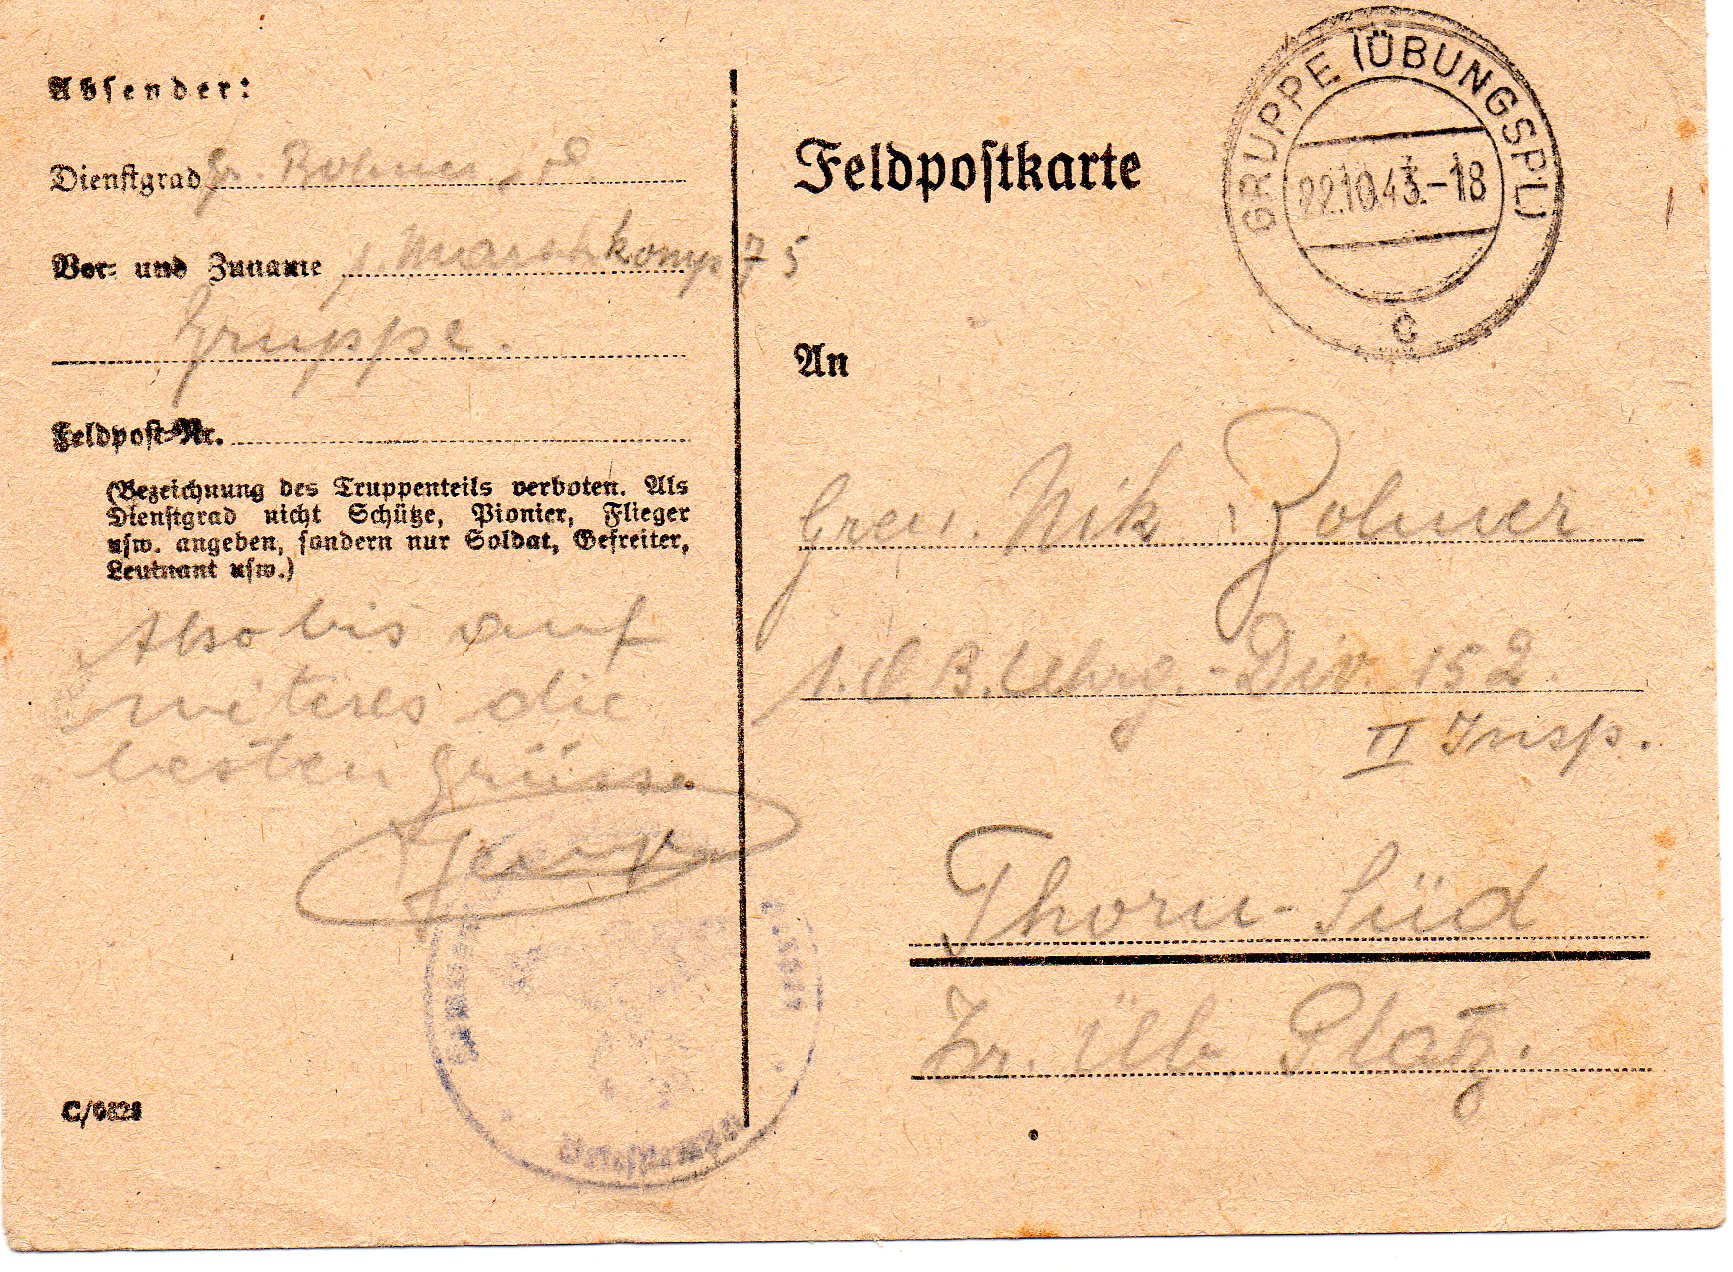 Absender:
Dienstgrad Gr. Bohner
Vor- und Zuname 1. Marschkomp 75
Gruppe.
Feldpost-Nr.
(Bezeichnung des Truppenteils verboten. Als
Dienstgrad nicht Schütze, Pionier, Flieger
usw. angeben, sondern nur Soldat, Gefreiter,
Leutnant usw.)
Also bis auf
weiteres die
besten Grüsse
C/0828
Feldpostkarte
GRUPPE (ÜBUNGSPL)
22.10.43.-18
c
An
Gren. Nik
Div. 152
II Insp.
Thorn-Süd
Tr. Üb. Platz.
Briefstempel